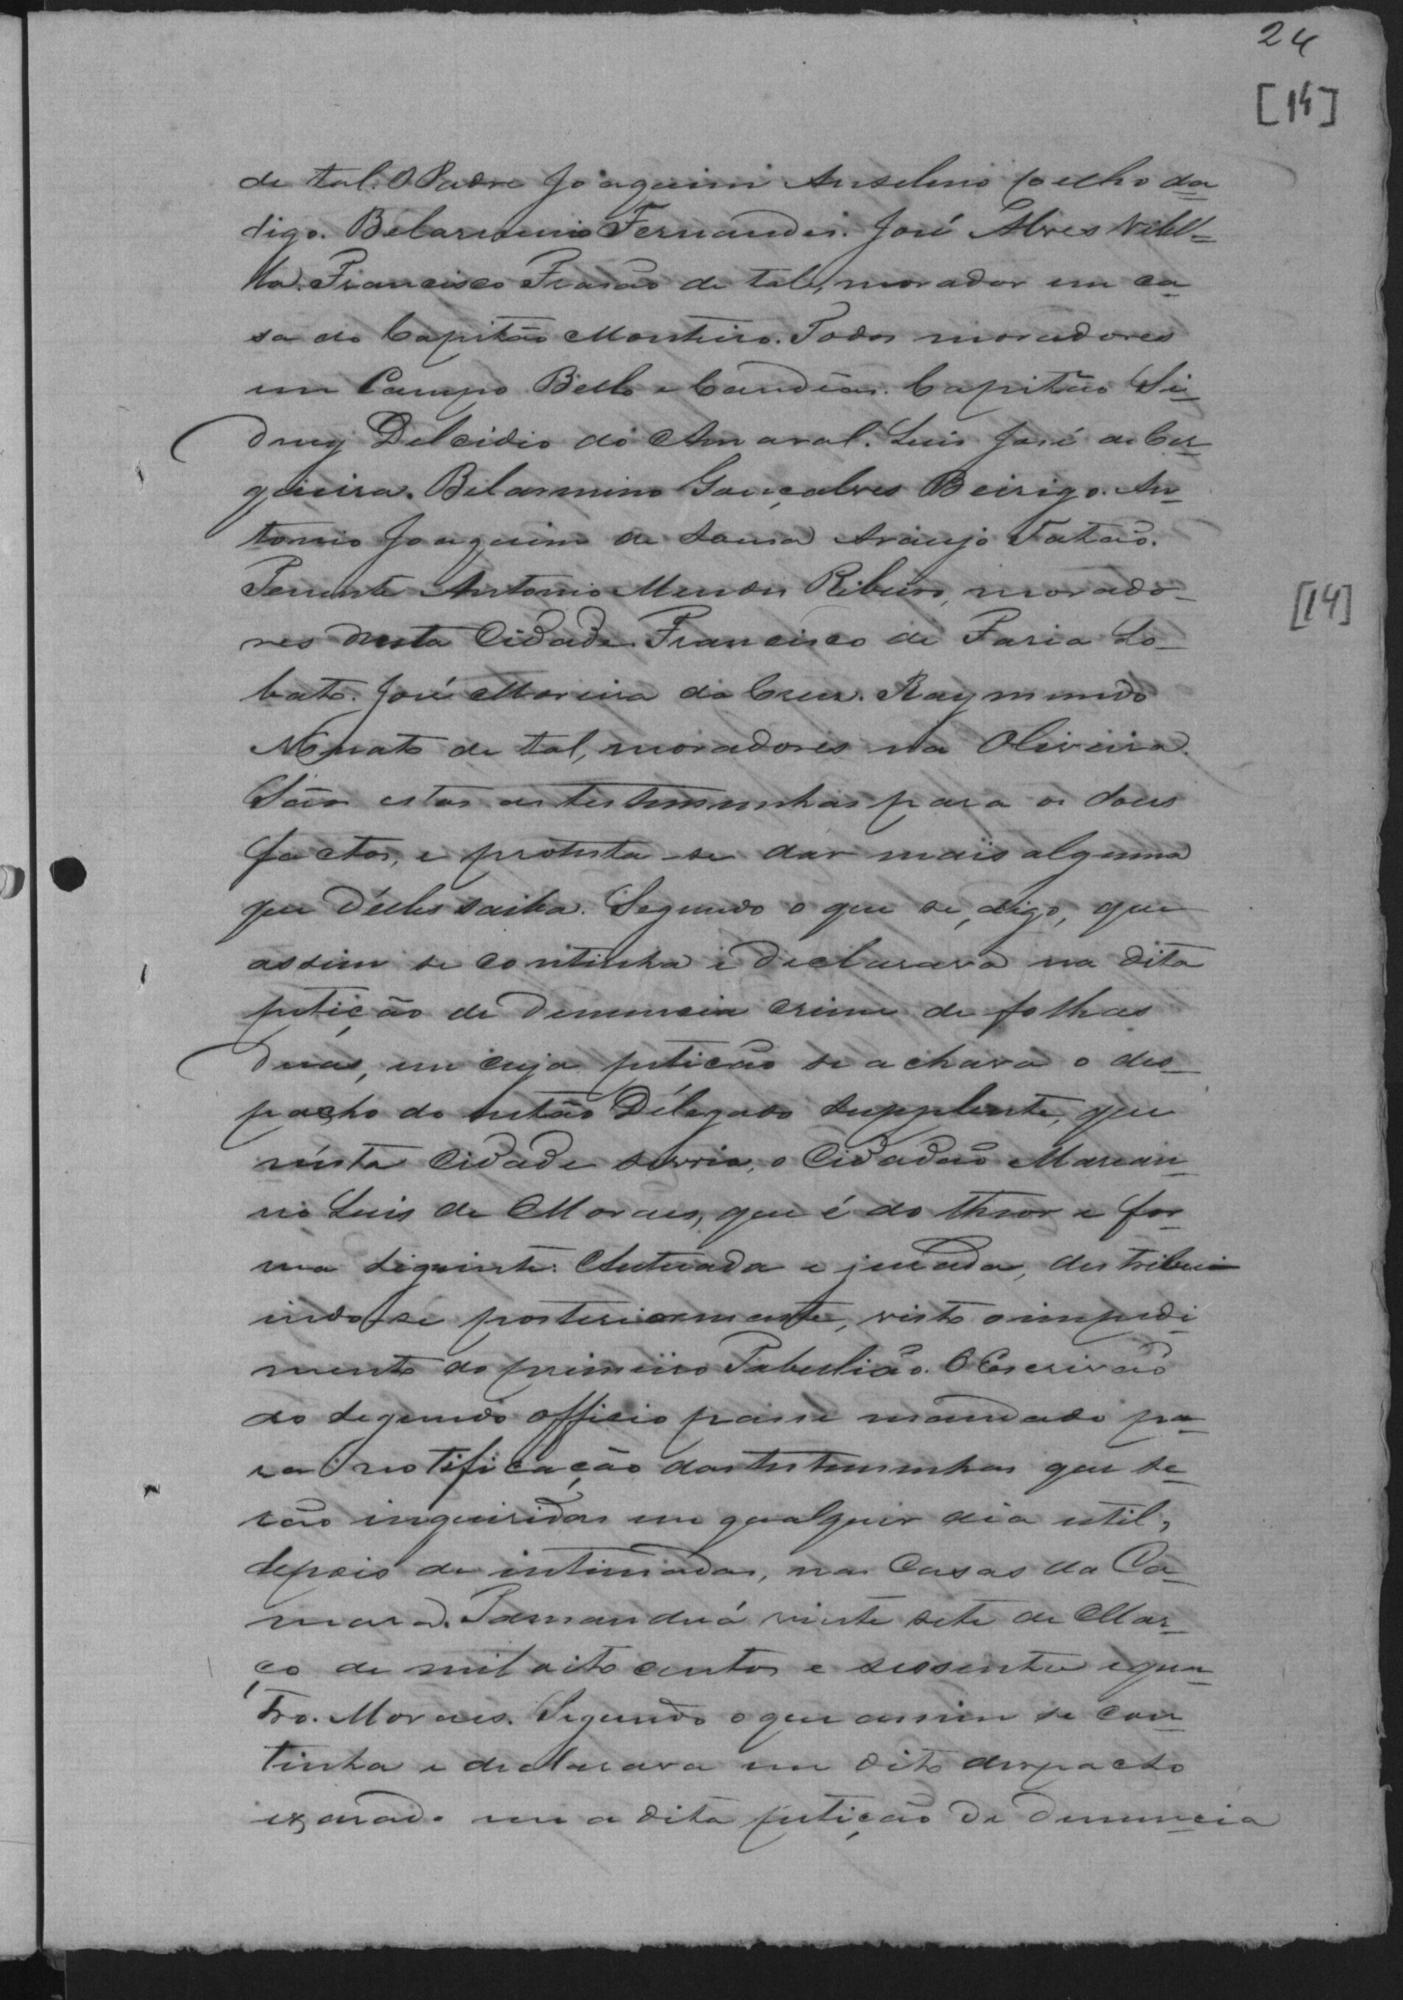 24
[14]
de tal. O Padre Joaquim Anselmo Coelho da
digo. Belarmino Fernandes. José Alves Vilel=
la. Francisco Frasão de tal, morador em ca=
sa do Capitão Monteiro. Todos moradores
em Campo Bello e Candêas. Capitão Si=
dney Delcidio do Amaral. Luis José de Cer=
queira. Belarmino Gonçalves Beirigo. An=
tonio Joaquim de Sousa Araujo Tatão.
Tenente Antonio Mendes Ribeiro, morado=
[14]
res nesta Cidade. Francisco de Faria Lo=
bato. José Moreira da Cruz. Raymundo
Nonato de tal, moradores na Oliveira.
São estas as testemunhas para os dous
factos, e protesta-se dar mais alguma
que d'elles saiba. Segundo o que se, digo, que
assim se continha e declarava na dita
petição de denuncia crime de folhas
duas, em cuja petição se achava o des=
pacho do então Délegado supplente, que
nésta Cidade servia, o Cidadão Marian=
no Luis de Moraes, que é do theor e for=
ma siguinte: Autuada e jurada, destribui
indo-se posteriormente, visto o impedi=
mento do primeiro Tabelião. O Escrivão
do segundo officio passe mandado pa=
ra notificação das testemunhas que se=
rão inqueridas em qualquer dia util,
depois de intimadas, nas Casas da Ca=
mara. Tamanduá vinte sete de Mar=
ço de mil oito centos e sessenta e qua=
tro. Moraes. Segundo o que assim se con=
tinha e declarava em dito despacho
exarado em a dita petição de denuncia